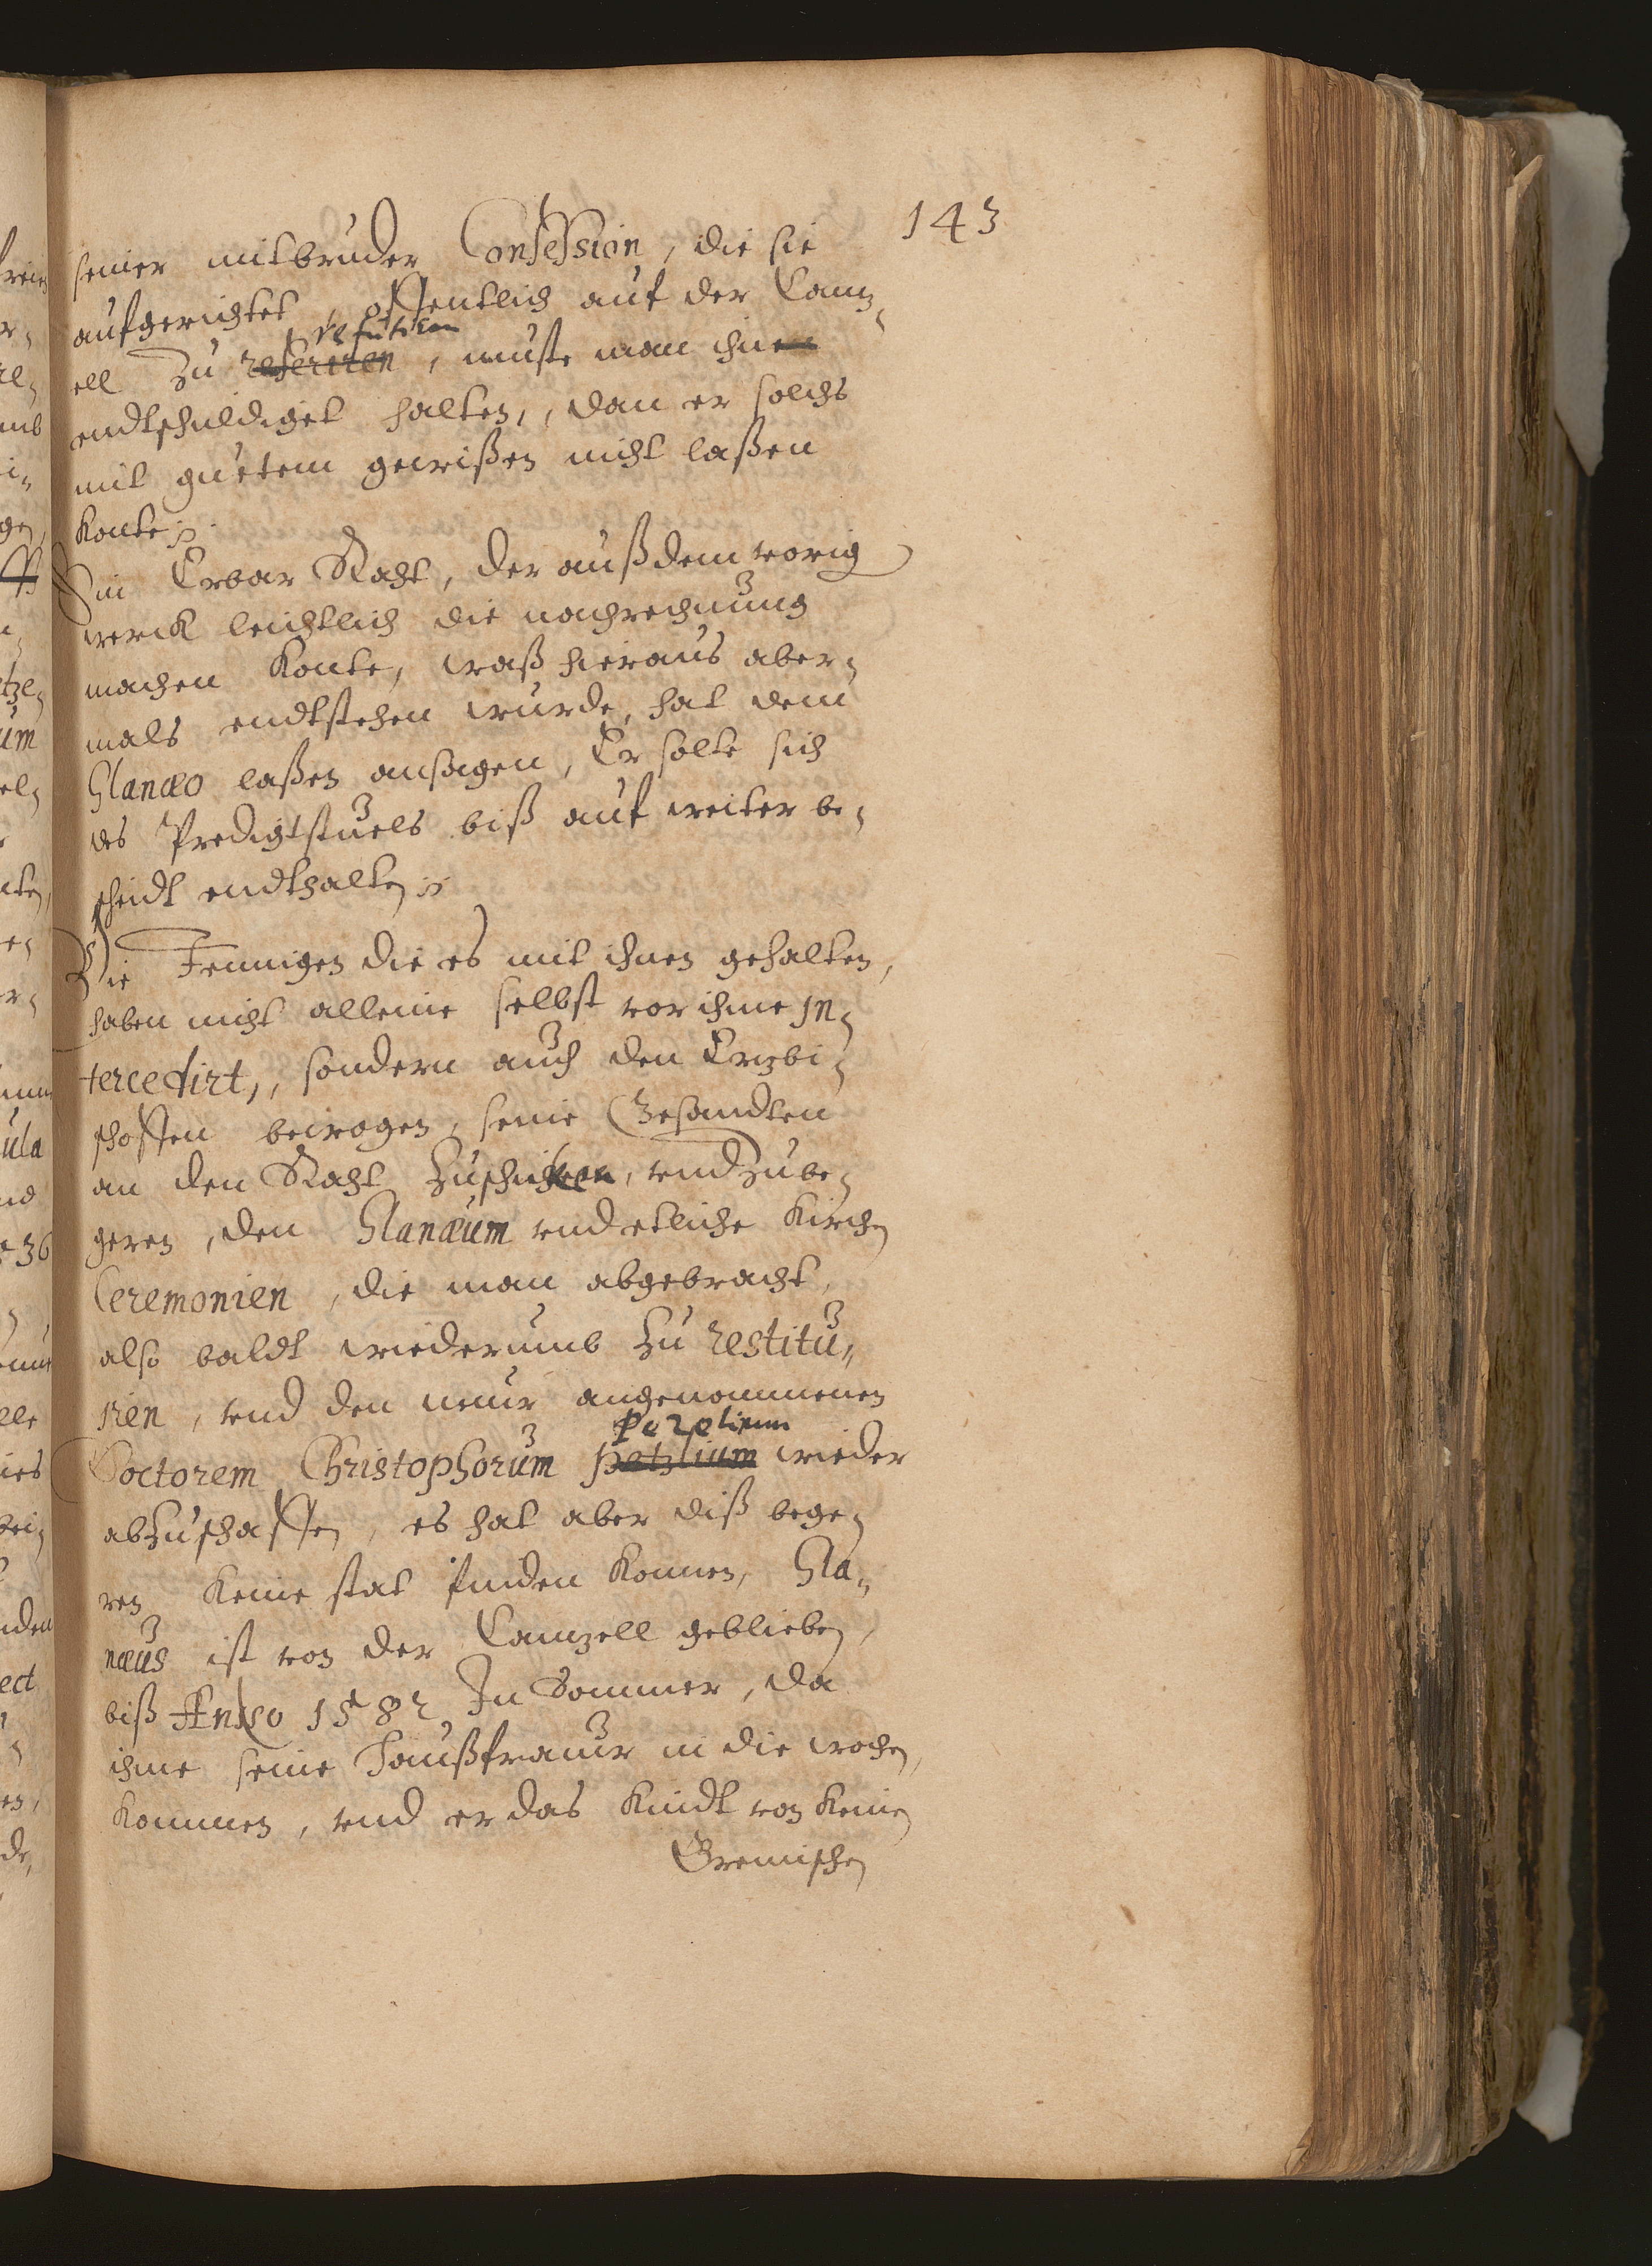 143
seiner mitbruder Confession, die sie
aufgerichtet, offentlich auf der Cantz„
refutiren
ell zu referiren, muste man ihnen
endtschuldiget halten,, dan er solchs
mit gutem gewißen nicht laßen
konte ;
Ein Erbar Raht, der auß dem vorig
werck leichtlich die nachrechnung
machen konte, waß hieraus aber„
mals endtstehen wurde, hat dem
Glanæo laßen ansagen, Er solte sich
des Predigtstuels biß auf weiter be„
scheidt endthalten ;
Die Jennigen die es mit ihnen gehalten,
haben nicht alleine selbst vor ihme in„
tercedirt,, sondern auch den Ertzbi„
schoffen bewogen, seine Gesandten
an den Raht zuschicken, vnd zube„
geren, den Glanæum vnd etliche Kirchen
Ceremonien, die man abgebracht,
also baldt wiederumb zu restitu„
iren, vnd den neuw angenommenen
Pezelium
Doctorem Christophorum Petzlium wieder
abzuschaffen, es hat aber diß bege„
ren keine stat finden konnen, Gla„
næus ist von der Cantzell geblieben,
biß Anno 1582 Im Sommer, da
ihme seine Haußfrauw in die wochen,
kommen, vnd er das Kindt von keinen
Bremischen